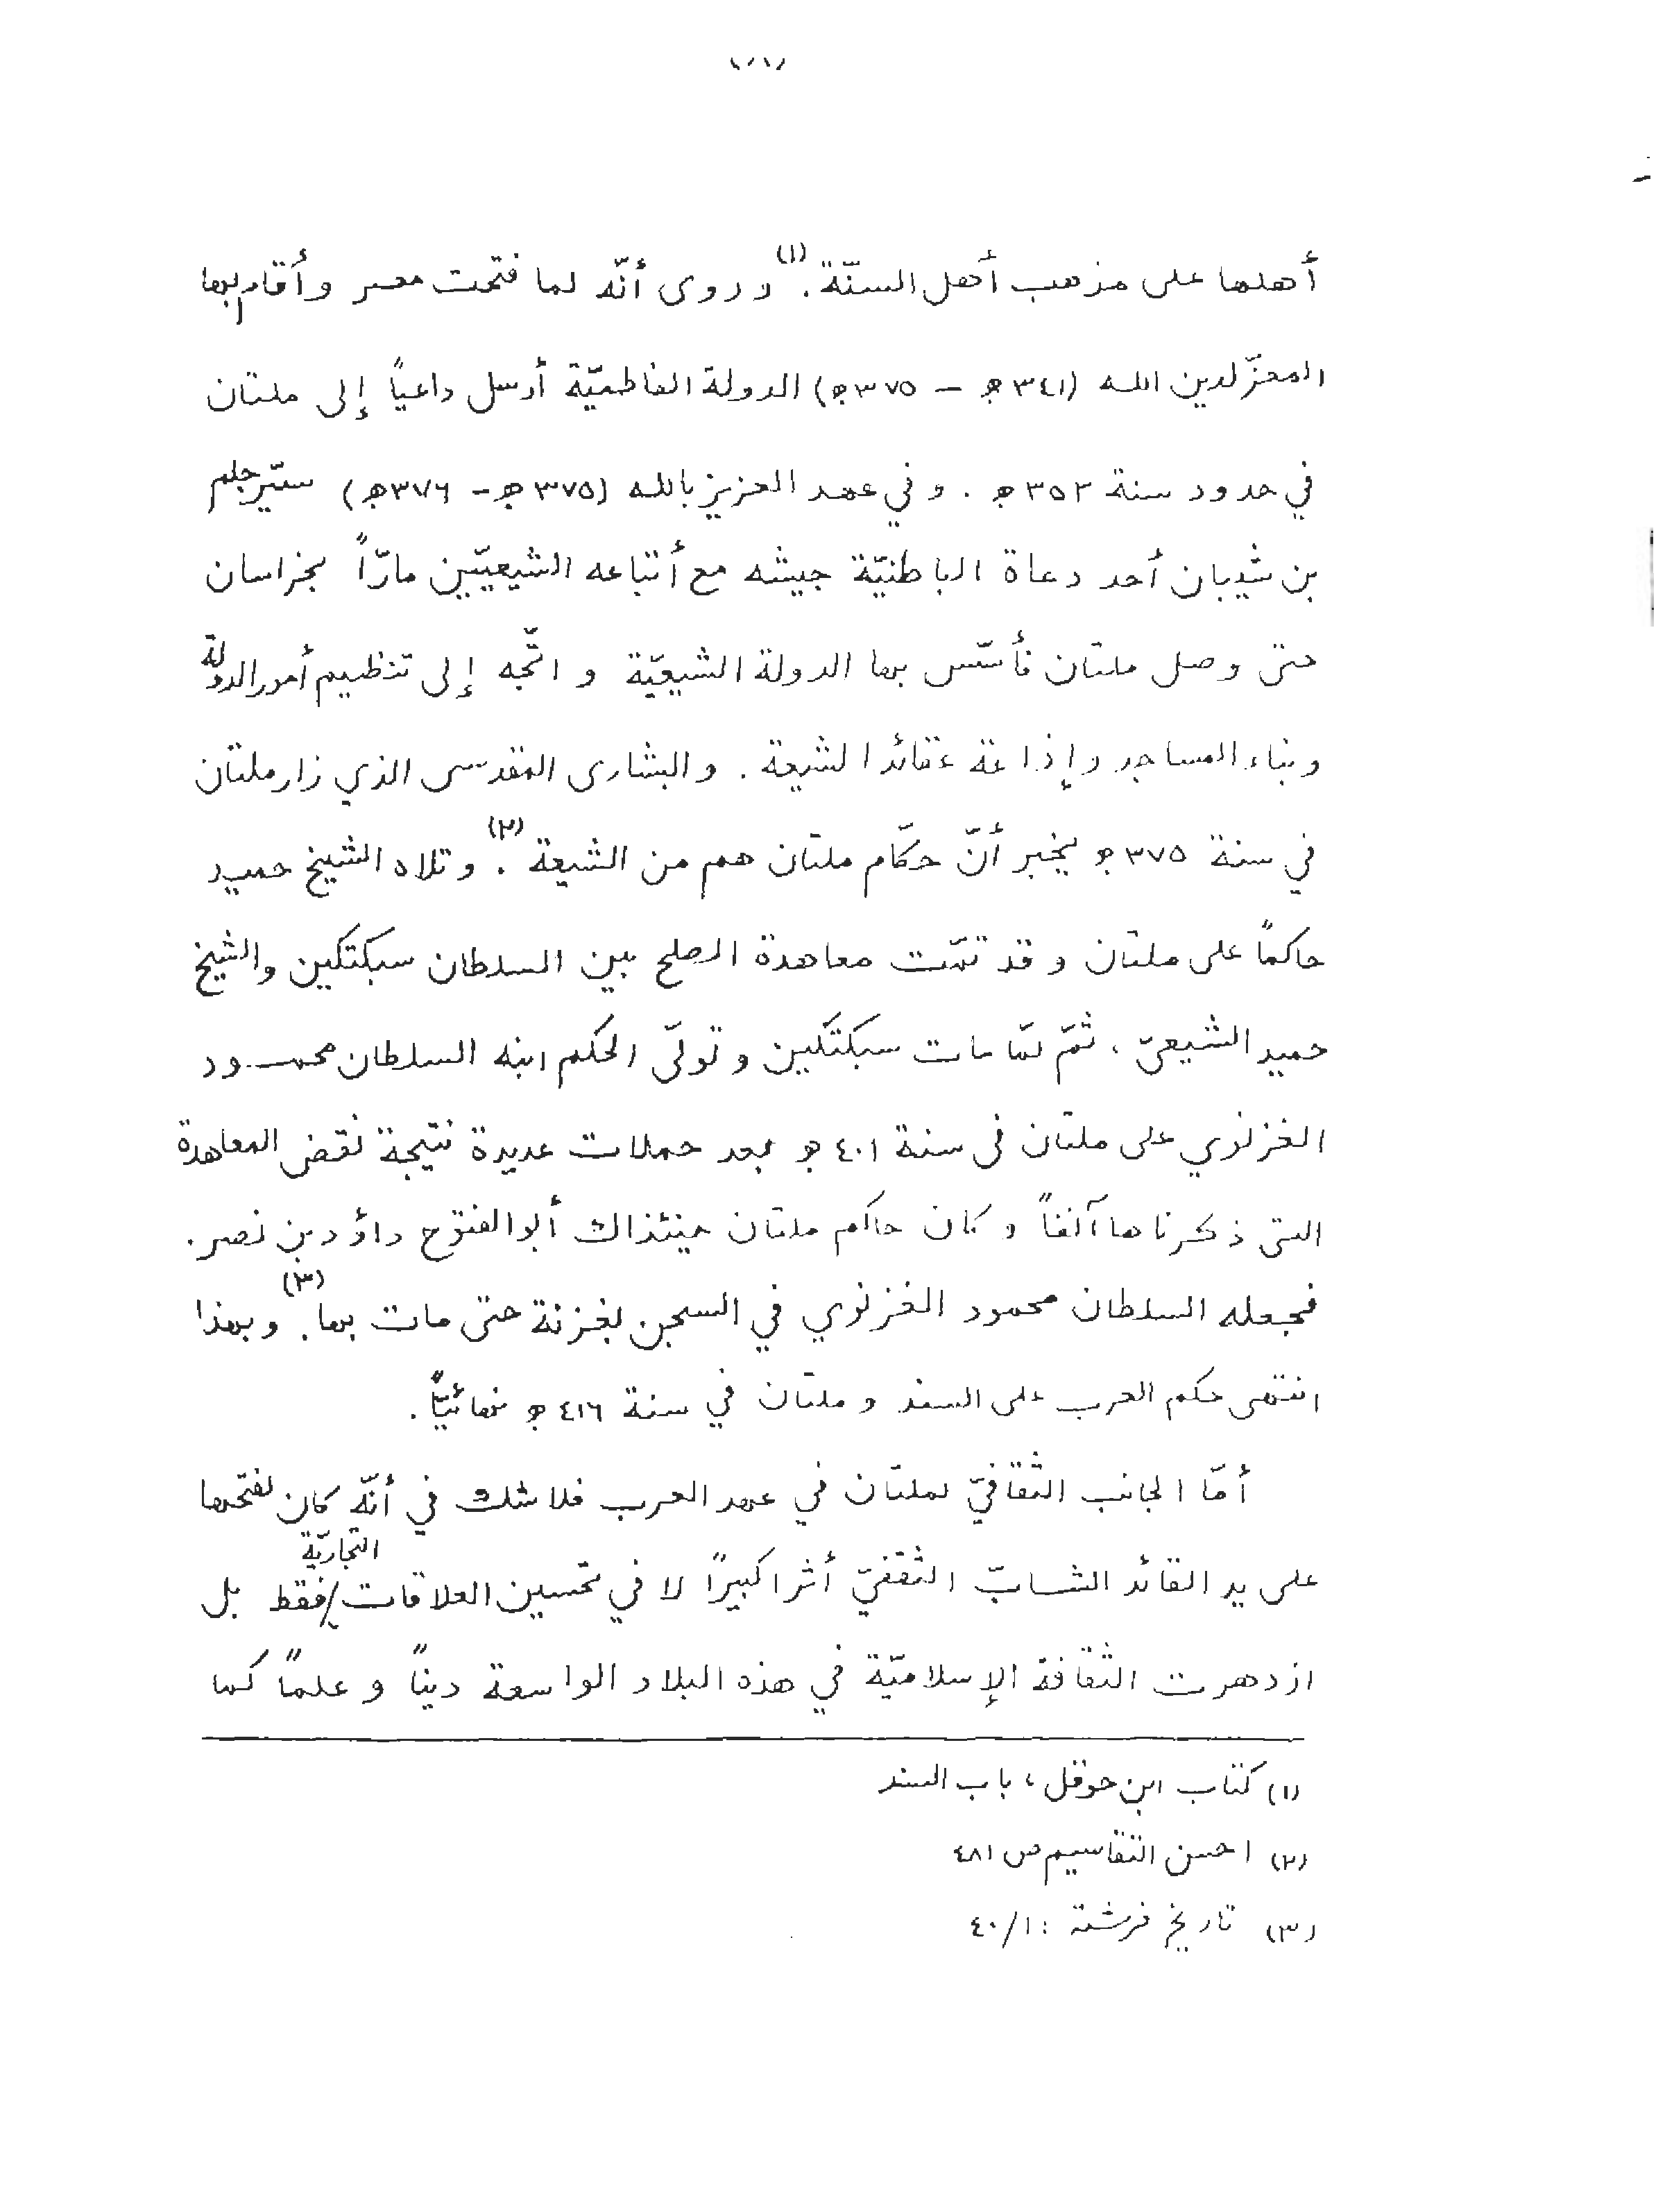 أهلها على مذهب أهل السنّة.(١) وروى أنّه لما فتحت مصر وأقام بها
المعزّ لدين الله (٣٤١ﻫ – ٣٧٥ﻫ) الدولة الفاطميّة أرسل داعياً إلى ملتان
في حدود سنة ٣٥٣ﻫ. وفي عهد العزيز بالله (٣٧٥ﻫ - ٣٧٦ﻫ) سيّر جلم
بن شيبان أحد دعاة الباطنيّة جيشه مع أتباعه الشيعيّين مارّاً بخراسان
حتى وصل ملتان فأسّس بها الدولة الشيعيّة و اتّجه إلى تنظيم أمور الدولة
وبناء المساجد وإذاعة عقائد الشيعة. والبشارى المقدسى الذي زار ملتان
في سنة ٣٧٥ﻫ يخبر أنّ حكّام ملتان هم من الشيعة.(٢) وتلاه الشيخ حميد
حاكماً على ملتان وقد تمّت معاهدة الصلح بين السلطان سبكتكين والشيخ
حميد الشيعيّ. ثمّ لمّا مات سبكتكين وتولّى الحكم ابنه السلطان محمود
الغزنوي على ملتان فى سنة ٤٠١ﻫ بعد حملات عديدة نتيجة نقض المعاهدة
التى ذكرناها آنفاً وكان حاكم ملتان حينئذاك أبو الفتوح داؤد بن نصر.
فجعله السلطان محمود الغزنوي في السجن بغزنة حتى مات بها.(٣) وبهذا
انتهى حكم العرب على السند وملتان في سنة ٤١٦ﻫ نهائيّاً.
أمّا الجانب الثقافيّ لملتان في عهد العرب فلا شك في أنّه كان لفتحها
على يد القائد الشابّ الثقفيّ أثرا كبيراً لا في تحسين العلاقات التجاريّة فقط بل
ازدهرت الثقافة الإسلاميّة في هذه البلاد الواسعة ديناً وعلماً كما
(١) كتاب ابن حوقل، باب السند
(٢) احسن التقاسيم ص ٤٨١
(٣) تاريخ فرشتة: ٤٠/١